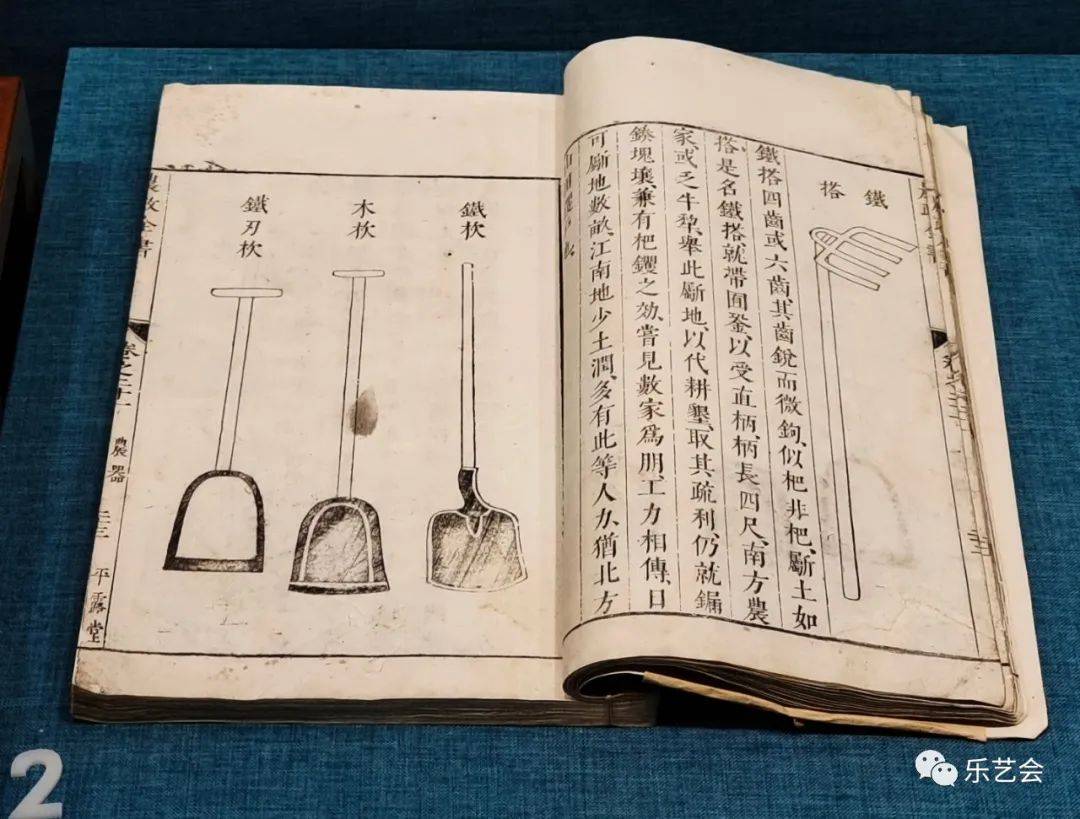 鐵搭
鐵搭四齒或六齒其齒銳而微鉤似杷非杷、斸土如
搭、是名鐵搭、就帶圓銎、以受直柄、柄長四尺、南方農
家、或乏牛犁、舉此斸地、以代耕墾、取其疏利、仍就鎉
鍨塊壤、兼有杷钁之效、嘗見數家為朋、工力相傳、日
可斸地數畝、江南地少土潤、多有此等人力、猶北方
山田
鐵杴
木杴
鐵刃杴
農政全書
卷之二十一
農器
二三
平露堂
2
乐艺会